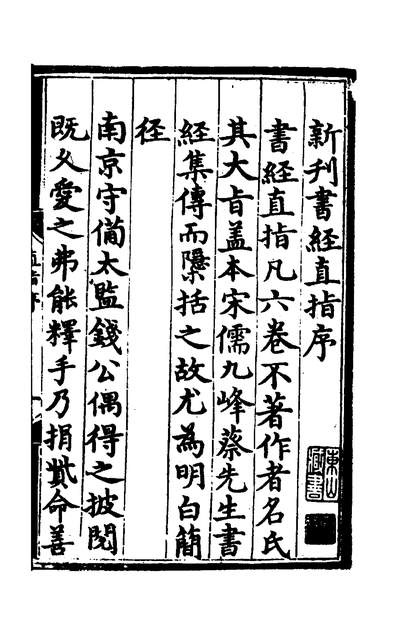 新刋書經直指序
書經直指凡六卷不著作者名氏
其大旨盖本宋儒九峰蔡先生書
經集傳而檃括之故尤為明白簡
径
南京守備太監錢公偶得之披閱
既久愛之弗能釋手乃捐貲命善
東山
直指序